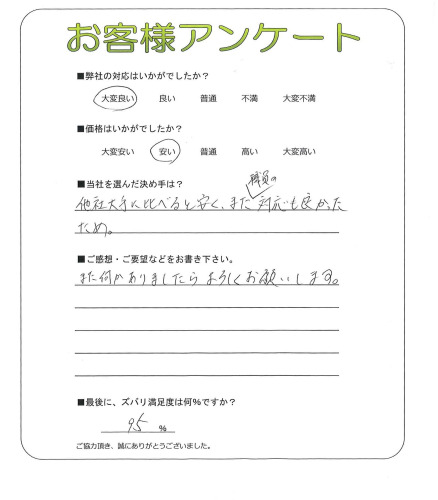 お客様アンケート
■弊社の対応はいかがでしたか？
大変良い 良い 普通 不満 大変不満
■価格はいかがでしたか？
大変安い 安い 普通 高い 大変高い
■当社を選んだ決め手は？
職員の
他社大手に比べると安く、また対応も良かった
ため。
■ご感想・ご要望などをお書き下さい。
また何かありましたらよろしくお願いします。
■最後に、ズバリ満足度は何％ですか？
95 ％
ご協力頂き、誠にありがとうございました。